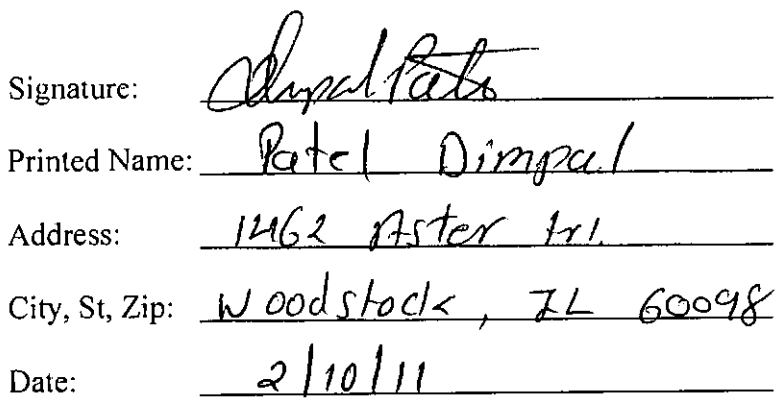 Signature: Dimpal Patel
Printed Name: Patel Dimpal
Address: 1462 Aster trl.
City, St, Zip: Woodstock, IL 60098
Date: 2/10/11